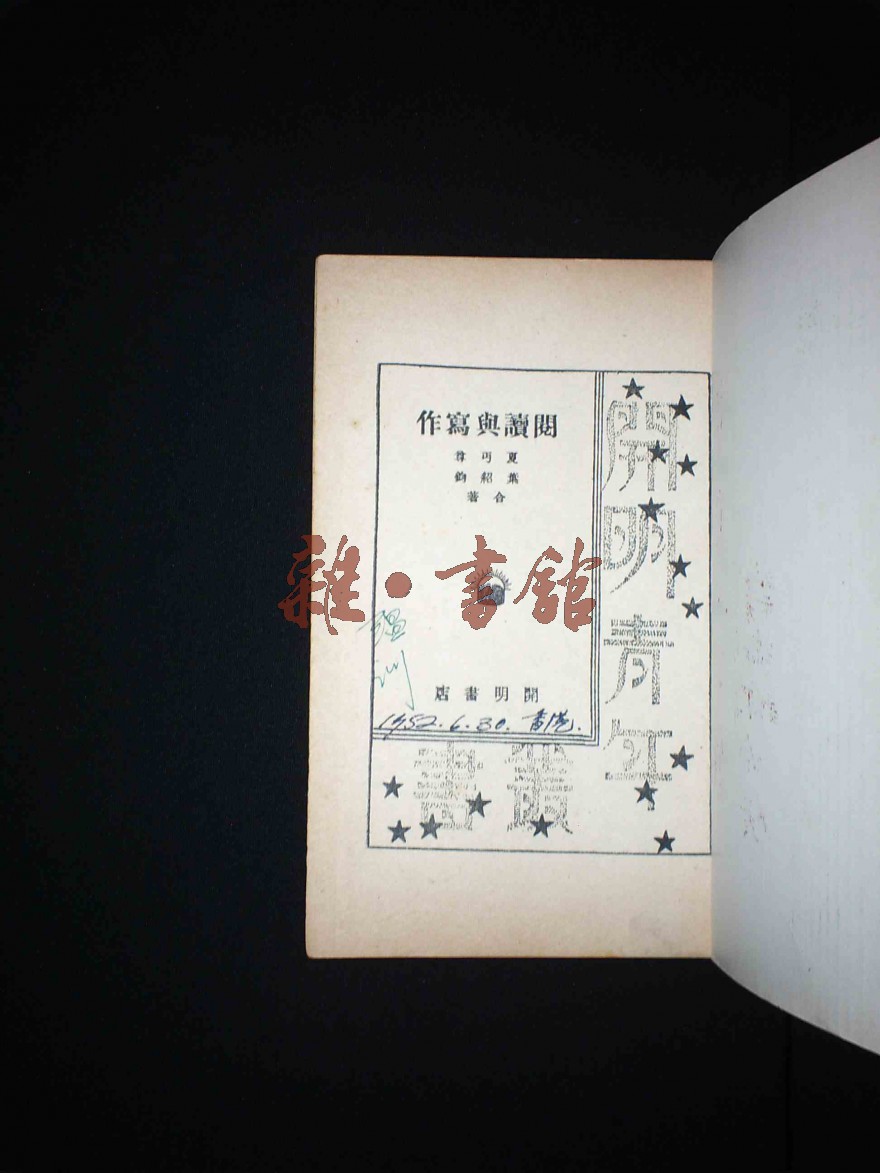 閱讀與寫作
夏丏尊
葉紹鈞
合著
開明書店
1952.6.30.香港.
開明青年
叢書
雜·書館